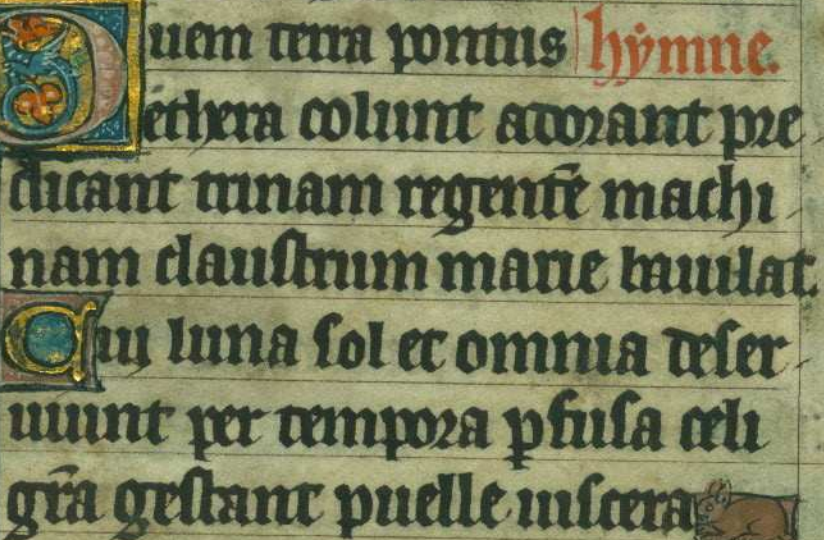 Quem terra pontus hymne.
ethera colunt adorant pre
dicant trinam regente̅ machi
nam claustrum marie baiulat.
Cui luna sol et omnia deser
uiunt per tempora ꝑfusa celi
gr̅a gestant puelle uiscera